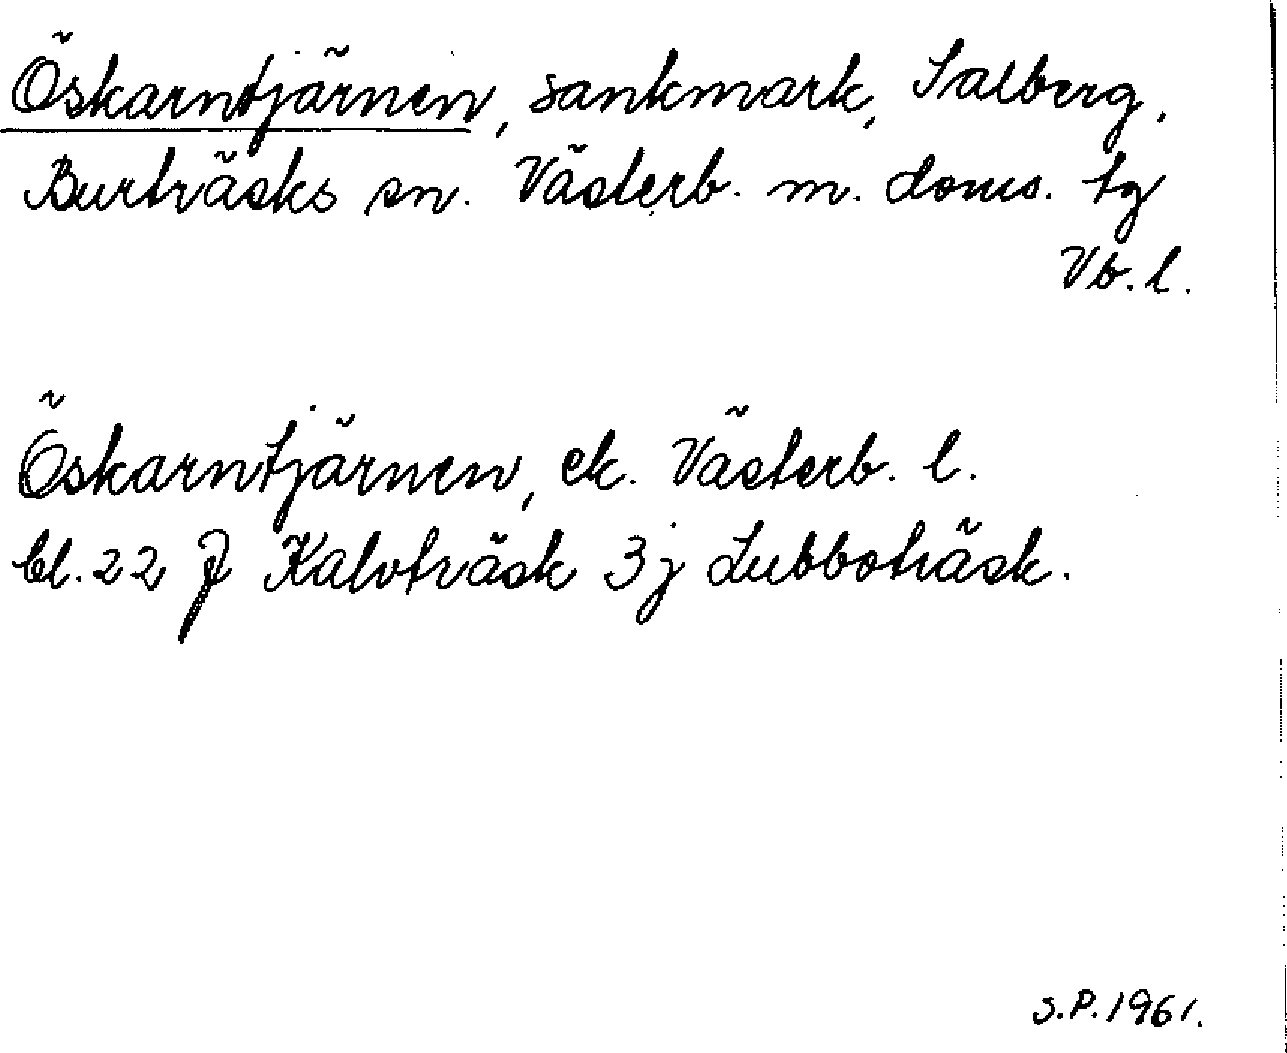 Öskarntjärnen, sankmark, Salberg,
Burträsks sn. Västerb. m. doms. tg
Vb. l.
Öskarntjärnen, ek. Västerb. l.
bl. 22 J Kalvträsk 3j Lubboträsk.
S.P. 1961.